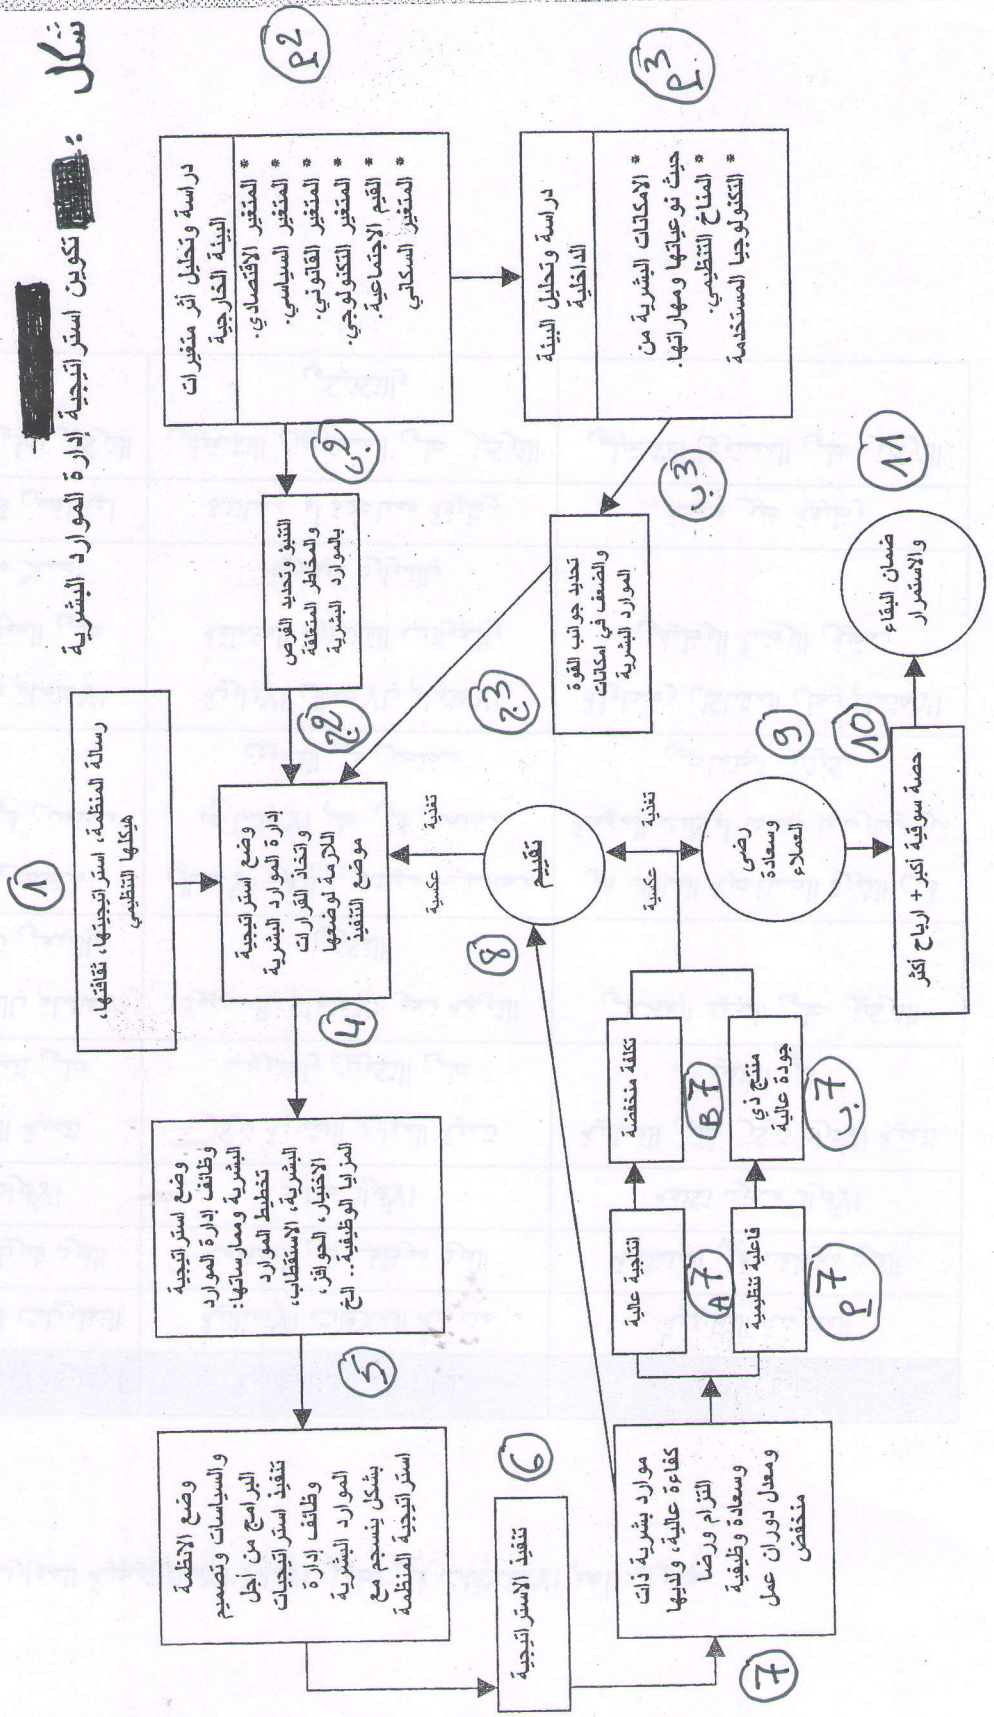 شكل
: تكوين استراتيجية إدارة الموارد البشرية
1
رسالة المنظمة، استراتيجيتها، ثقافتها،
هيكلها التنظيمي
2
أ
دراسة وتحليل أثر متغيرات
البيئة الخارجية
* المتغير الاقتصادي.
* المتغير السياسي.
* المتغير القانوني.
* المتغير التكنولوجي.
* القيم الاجتماعية.
* المتغير السكاني
ب2
التنبؤ وتحديد الفرص
والمخاطر المتعلقة
بالموارد البشرية
ج2
3
أ
دراسة وتحليل البيئة
الداخلية
* الامكانات البشرية من
حيث نوعياتها ومهاراتها.
* المناخ التنظيمي.
* التكنولوجيا المستخدمة
ب3
تحديد جوانب القوة
والضعف في امكانات
الموارد البشرية
ج3
وضع استراتيجية
إدارة الموارد البشرية
واتخاذ القرارات
اللازمة لوضعها
موضع التنفيذ
4
وضع استراتيجية
وظائف إدارة الموارد
البشرية وممارساتها
تخطيط الموارد
البشرية، الاستقطاب،
الاختيار، الحوافز،
المزايا الوظيفية.. الخ
5
وضع الانظمة
والسياسات وتصميم
البرامج من اجل
تنفيذ استراتيجيات
وظائف إدارة
الموارد البشرية
بشكل ينسجم مع
استراتيجية المنظمة
6
تنفيذ الاستراتيجية
7
موارد بشرية ذات
كفاءة عالية، ولديها
التزام ورضا
وسعادة وظيفية
ومعدل دوران عمل
منخفض
انتاجية عالية
A 7
تكلفة منخفضة
B 7
فاعلية تنظيمية
أ 7
منتج ذي
جودة عالية
ب 7
8
تقييم
تغذية
عكسية
تغذية
عكسية
9
رضى
وسعادة
العملاء
10
حصة سوقية أكبر + ارباح أكثر
11
ضمان البقاء
والاستمرار